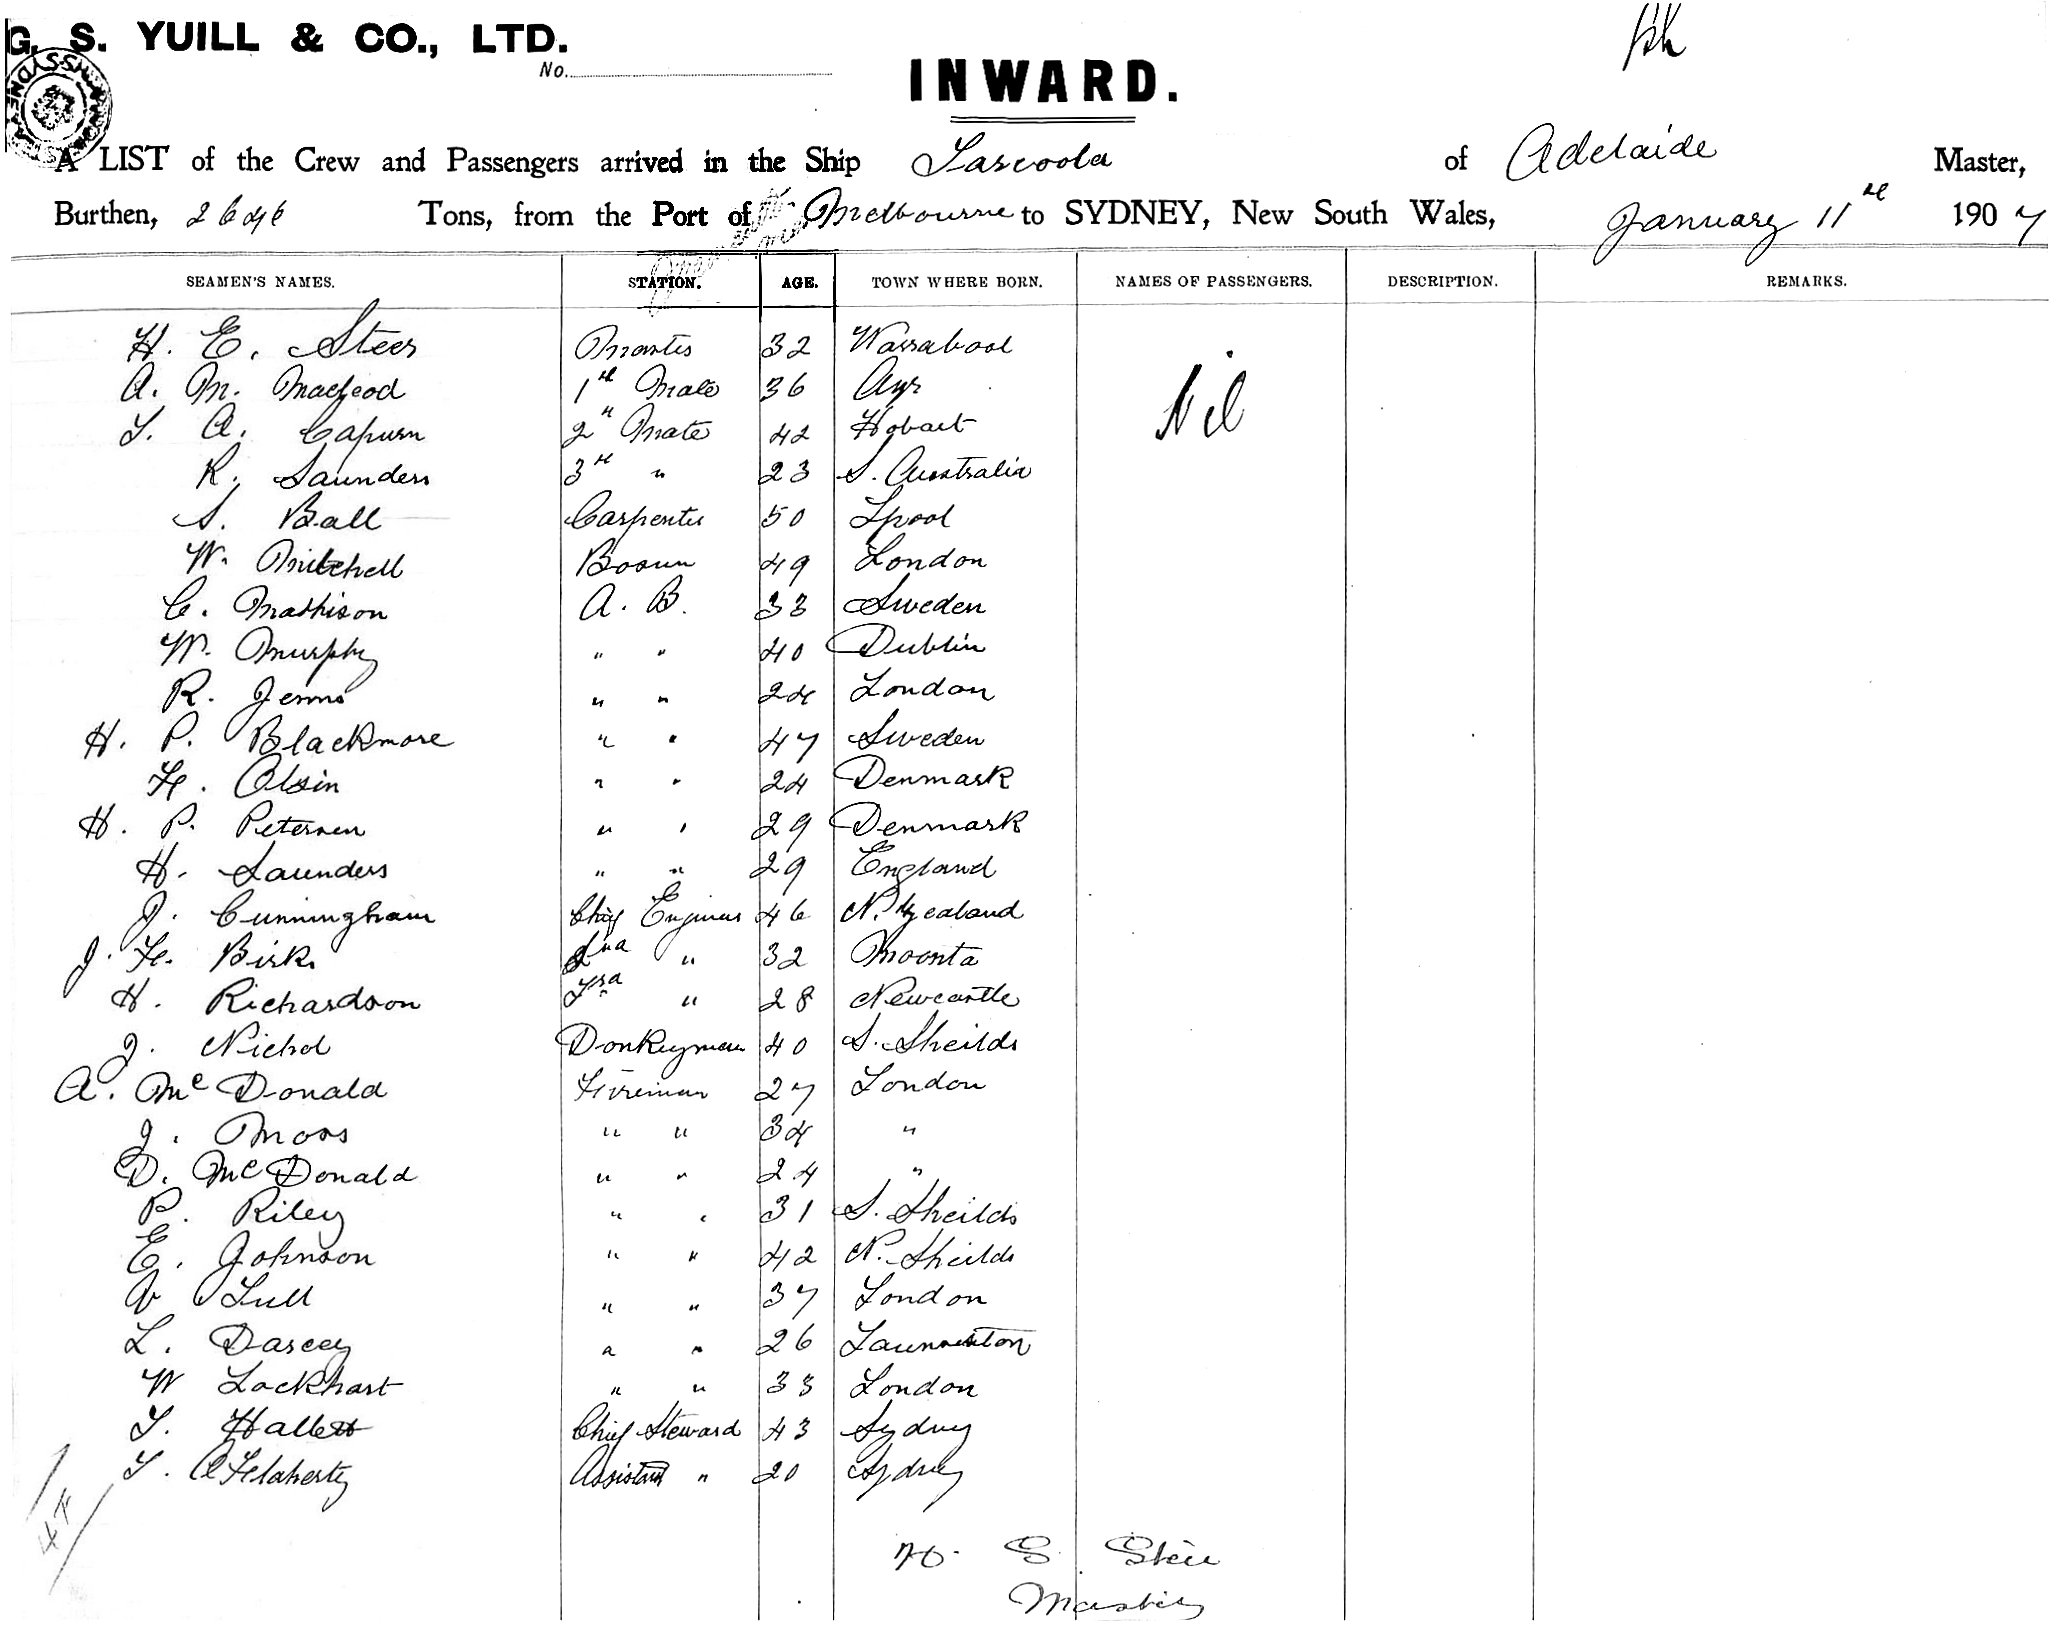 G. S. YUILL & CO., LTD.
No.
INWARD.
A LIST of the Crew and Passengers arrived in the Ship Tarcoola of Adelaide Master,
Burthen, 2646 Tons, from the Port of Melbourne to SYDNEY, New South Wales, January 11th 1907
SEAMEN'S NAMES. STATION. AGE. TOWN WHERE BORN. NAMES OF PASSENGERS. DESCRIPTION. REMARKS.
H. E. Steer Master 32 Warrabool
A. M. MacLeod 1st Mate 36 Ayr Nil
T. A. Capurn 2nd Mate 42 Hobart
R. Saunders 3rd " 23 S. Australia
S. Ball Carpenter 50 Lpool
W. Mitchell Bosun 49 London
C. Mathison A. B. 33 Sweden
W. Murphy " " 40 Dublin
R. " " 24 London
H. P. Blackmore " " 47 Sweden
F. Olsin " " 24 Denmark
H. P. Petersen " " 29 Denmark
H. Saunders " " 29 England
J. Cunningham Chief Engineer 46 N. Zealand
J. F. Birks 2nd " 32 Moonta
H. Richardson 3rd " 28 Newcastle
J. Nichol Donkeyman 40 S. Sheilds
A. McDonald Fireman 27 London
J. Moss " " 34 "
D. McDonald " " 24 "
P. Riley " " 31 S. Sheilds
E. Johnson " " 42 N. Sheilds
Tull " " 37 London
L. Darcey " " 26 Launceston
W Lockhart " " 33 London
T. Hallett Chief Steward 43 Sydney
T. OFlaherty Assistant " 20 Sydney
H. E. Steer
Master